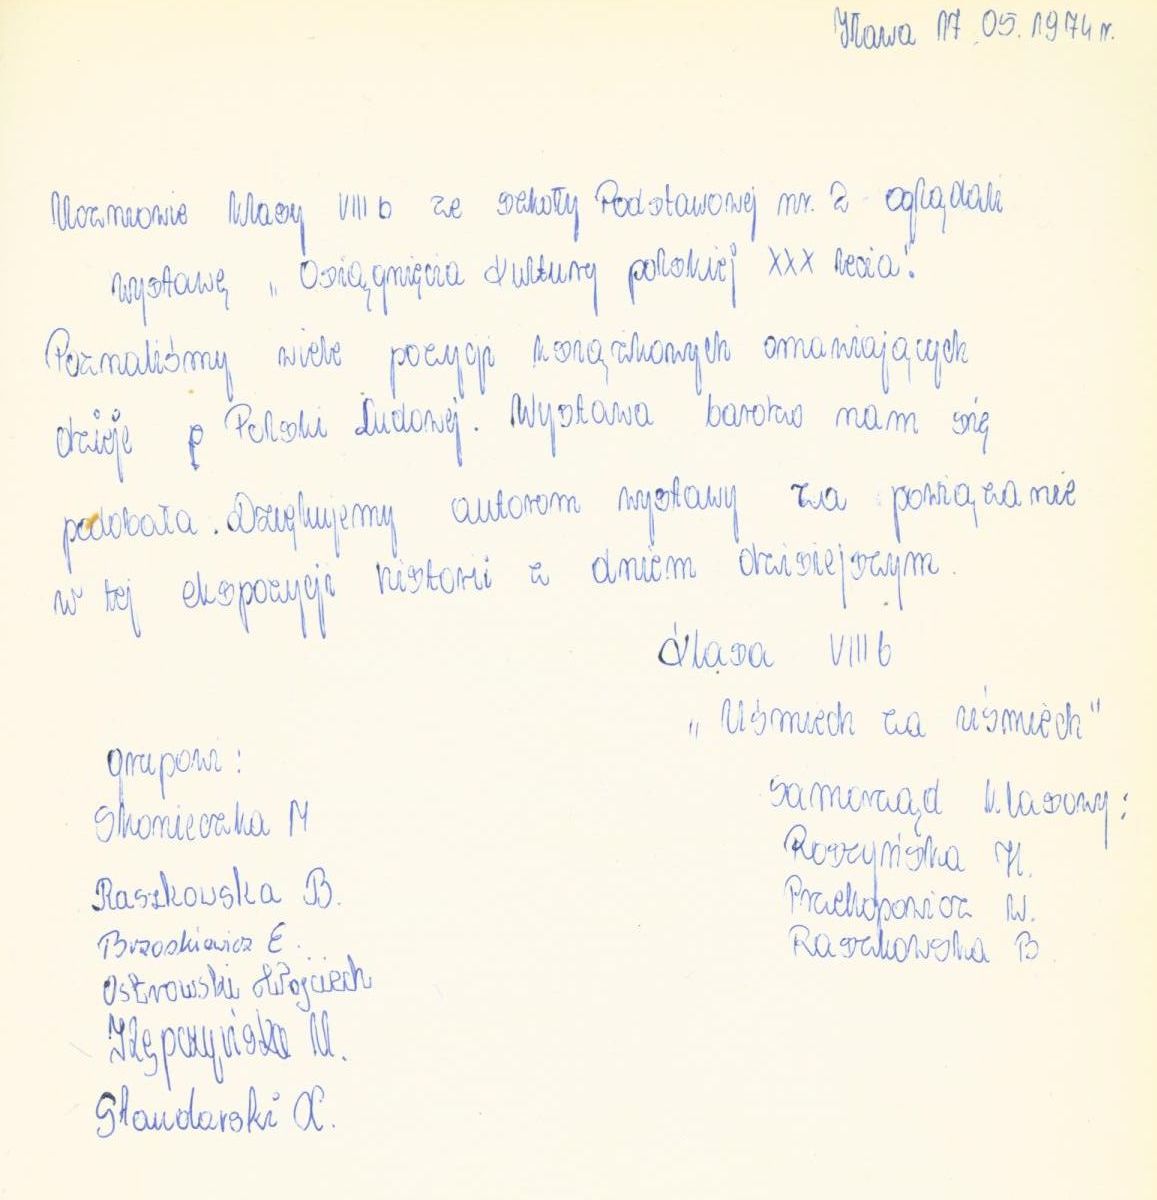 Iława 17.05.1974 r.
Uczniowie klasy VIII b ze szkoły Podstawowej nr. 2 oglądali
wystawę „Osiągnięcia Kultury polskiej XXX lecia".
Poznaliśmy wiele pozycji książkowych omawiających
dzieje p Polski Ludowej. Wystawa bardzo nam się
podobała. Dziękujemy autorom wystawy za powiązanie
w tej ekspozycji historii z dniem dzisiejszym.
Klasa VIII b
„Uśmiech za uśmiech"
grupowi:
Skonieczka M
Raszkowska B.
Brzoskiewicz E.
Ostrowski Wojciech
M.
samorząd klasowy:
Roszyńska H.
W.
Raszkowska B.